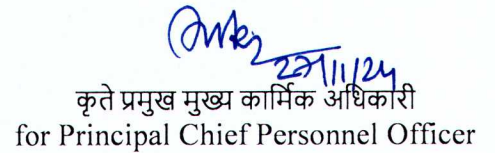 27/11/24
कृते प्रमुख मुख्य कार्मिक अधिकारी
for Principal Chief Personnel Officer